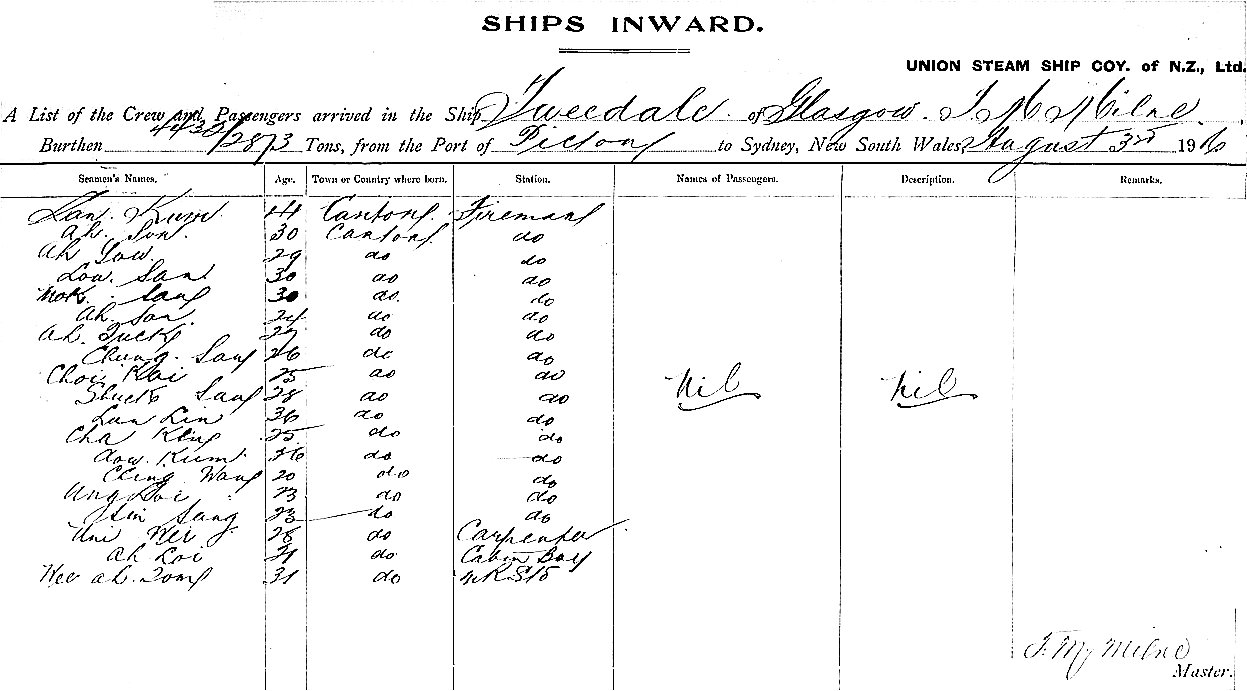 SHIPS INWARD.
UNION STEAM SHIP COY. of N.Z., Ltd.
A List of the Crew and Passengers arrived in the Ship Tweedale of Glasgow. Milne
Burthen 4430/2873 Tons, from the Port of Picton to Sydney, New South Wales, August 3rd 19
Seamen's Names. Age. Town or Country where born. Station. Names of Passengers. Description. Remarks.
Lan Kum 44 Canton Fireman
Ah. Son. 30 Canton do
Ah Yow. 29 do do
Low Sam 30 do do
Mok Sang 30 do. do
Ah. Son 24 do do
Ah. Tuck 27 do do
Chung Sang 26 do do
Choi Kai 25 do do Nil Nil
Shuck Sang 28 do do
Lun Lin 36 do do
Cha King 25 do do
Kum 36 do do
Ching Wang 20 do do
Ung Loi 23 do do
Sin Sang 23 do do
Uni Wei 28 do Carpenter
Ah Loi 21 do Cabin Boy
Wee ah Tong 31 do
Milne
Master.